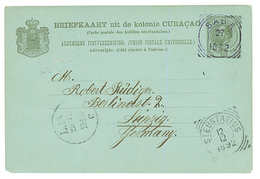 BRIEFKAART uit de kolonie CURAÇAO
(Carte postale des Antilles néerlandaises)
ALGEMEENE POSTVEREENIGING. (UNION POSTALE UNIVERSELLE)
Adreszijde. (Côté réservé à l'adresse.)
SABA
27
1892
Mr. Robert Rüdiger.
Berlinerstr. 2.
Leipzig
Germany.
ST EUSTATIUS
12
12
1892